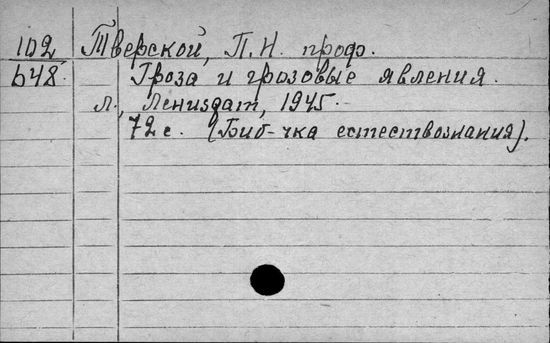 102 Тверской, П.Н. проф.
648 Гроза и грозовые явления.
Л., Лениздат, 1945.
72 с. (Биб-чка естествознания).